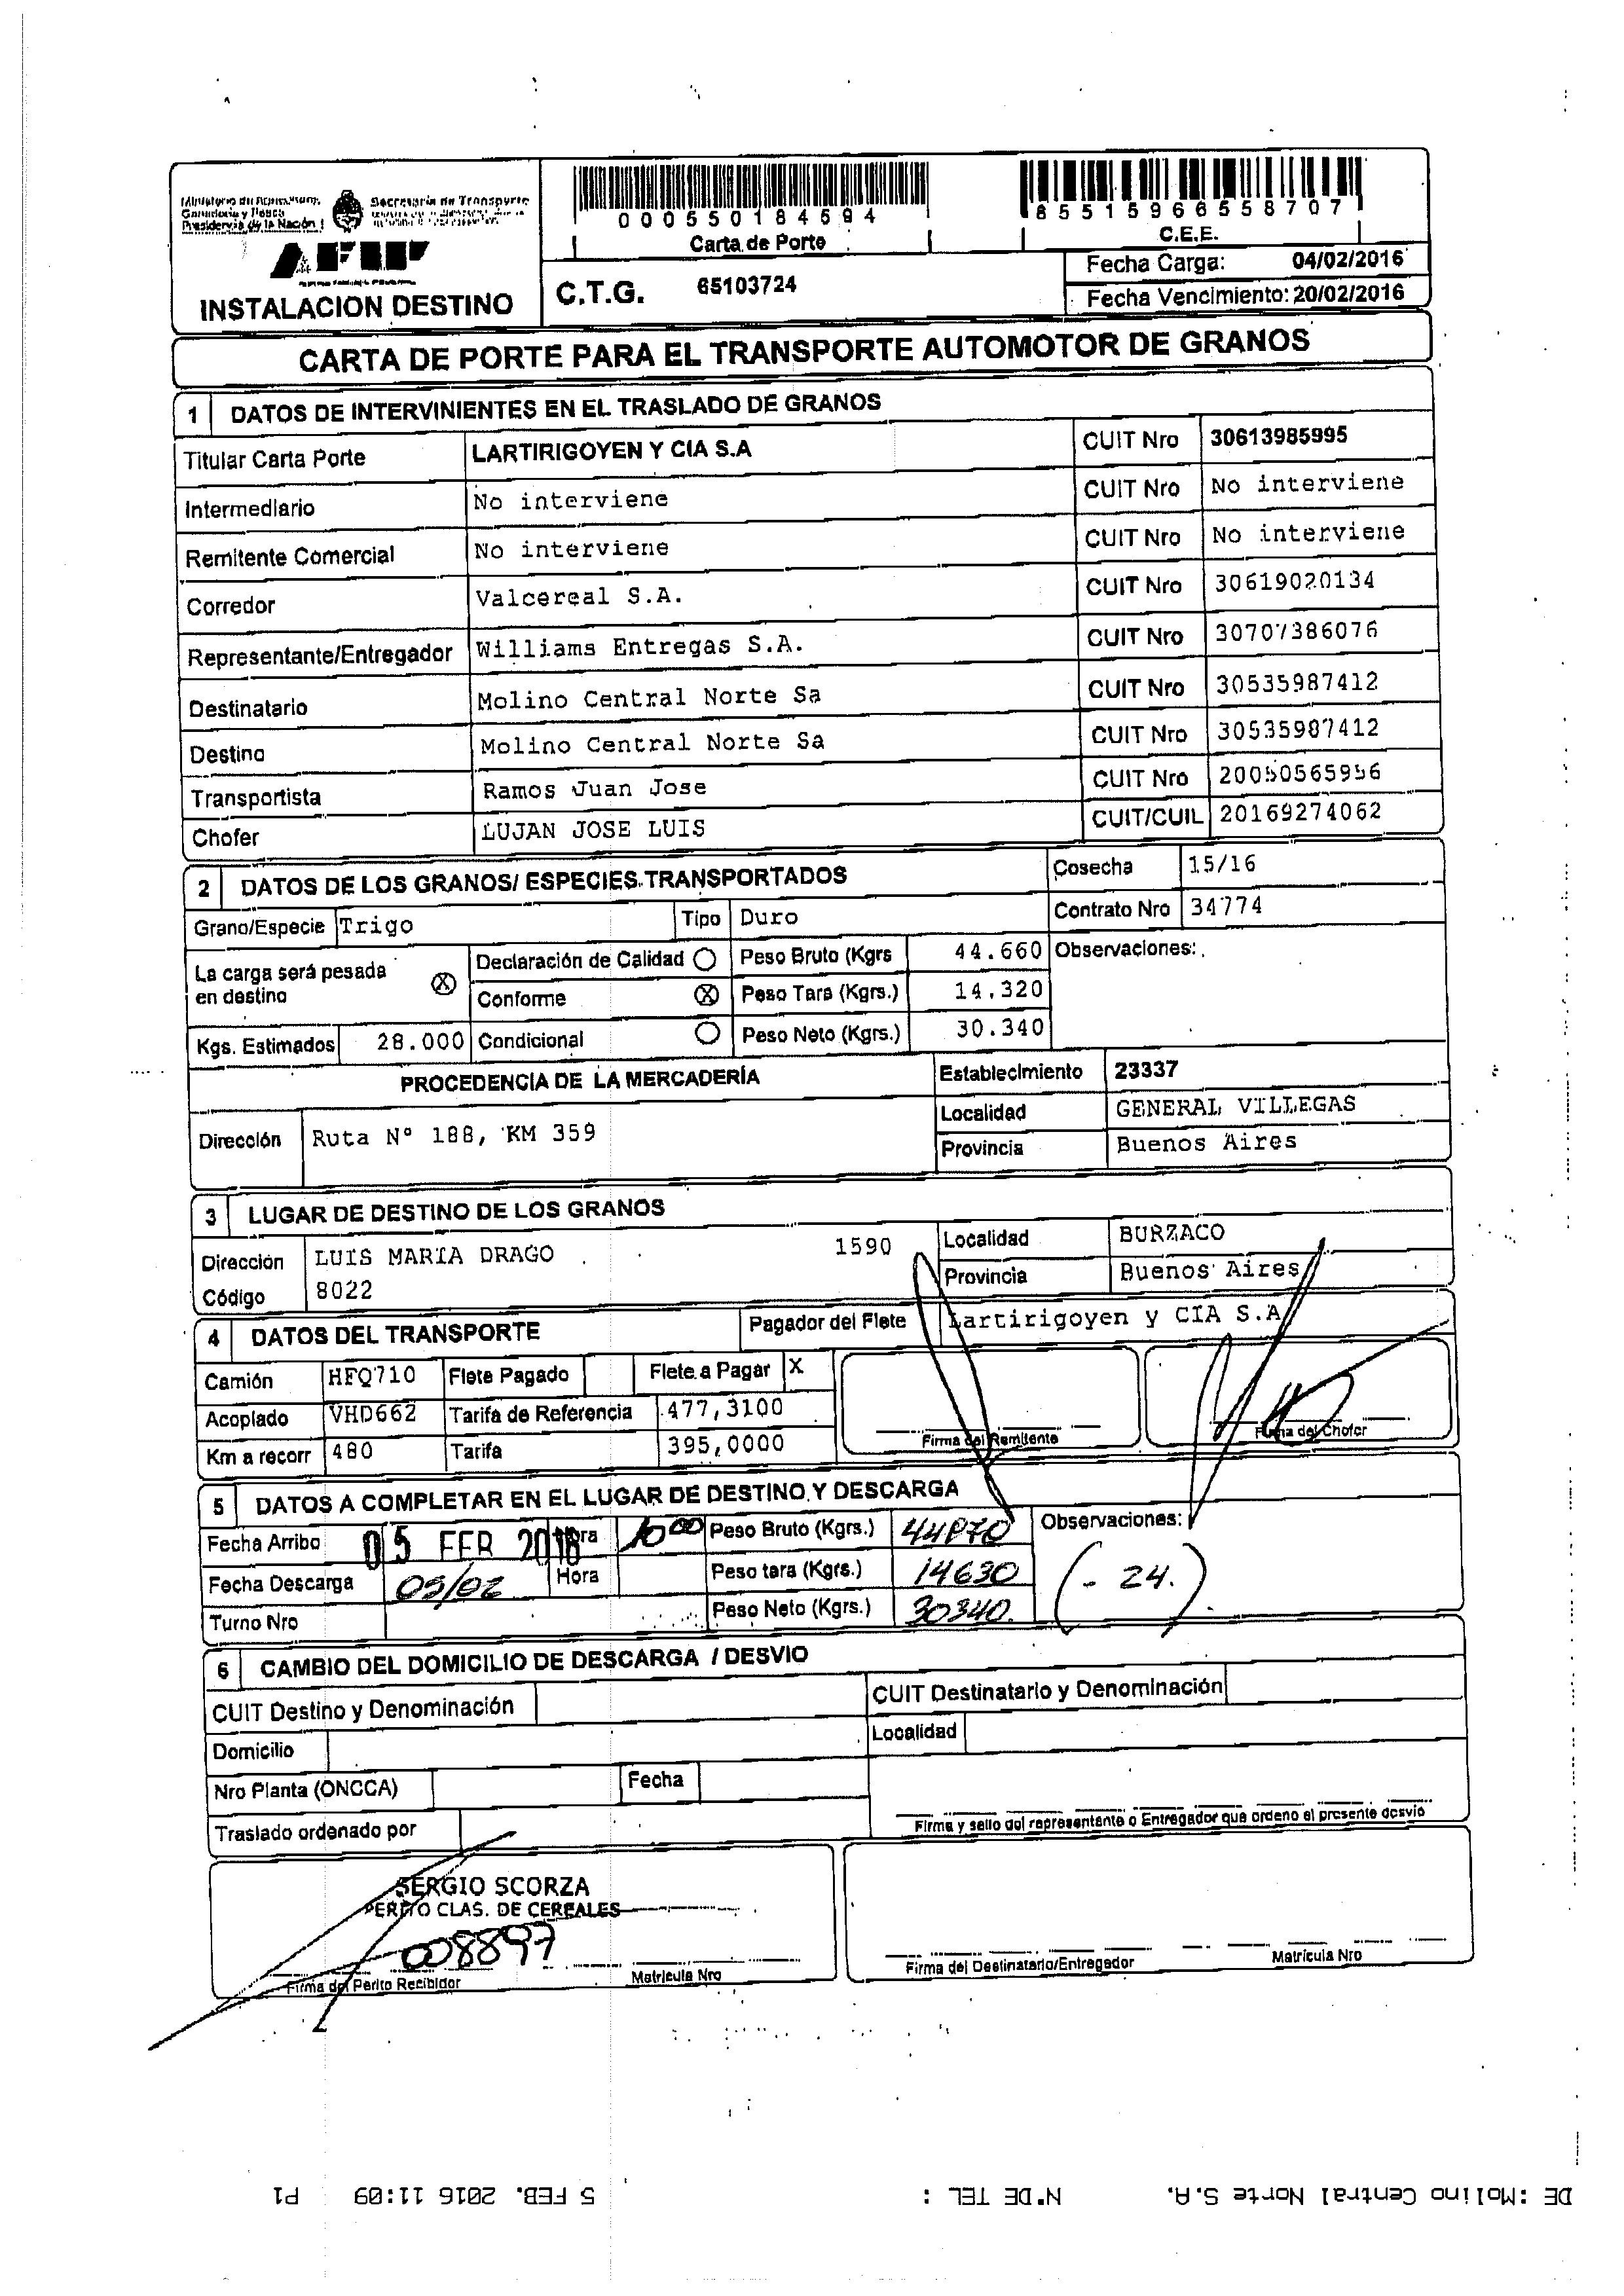 Ministerio de Agricultura,
Ganadería y Pesca
Presidencia de la Nación
Secretaría de Transporte
AFIP
INSTALACION DESTINO
000550184594
Carta de Porte
65515966558707
C.E.E.
C.T.G. 65103724
Fecha Carga: 04/02/2016
Fecha Vencimiento: 20/02/2016
CARTA DE PORTE PARA EL TRANSPORTE AUTOMOTOR DE GRANOS
1 DATOS DE INTERVINIENTES EN EL TRASLADO DE GRANOS
Titular Carta Porte LARTIRIGOYEN Y CIA S.A CUIT Nro 30613985995
Intermediario No interviene CUIT Nro No interviene
Remitente Comercial No interviene CUIT Nro No interviene
Corredor Valcereal S.A. CUIT Nro 30619020134
Representante/Entregador Williams Entregas S.A. CUIT Nro 30707386076
Destinatario Molino Central Norte Sa CUIT Nro 30535987412
Destino Molino Central Norte Sa CUIT Nro 30535987412
Transportista Ramos Juan Jose CUIT Nro 20050565956
Chofer LUJAN JOSE LUIS CUIT/CUIL 20169274062
2 DATOS DE LOS GRANOS/ ESPECIES TRANSPORTADOS Cosecha 15/16
Grano/Especie Trigo Tipo Duro Contrato Nro 34774
La carga será pesada en destino X Declaración de Calidad Peso Bruto (Kgrs 44.660 Observaciones:
Conforme X Peso Tara (Kgrs.) 14.320
Kgs. Estimados 28.000 Condicional Peso Neto (Kgrs.) 30.340
PROCEDENCIA DE LA MERCADERÍA Establecimiento 23337
Localidad GENERAL VILLEGAS
Dirección Ruta Nº 188, KM 359 Provincia Buenos Aires
3 LUGAR DE DESTINO DE LOS GRANOS
Dirección LUIS MARIA DRAGO 1590 Localidad BURZACO
Código 8022 Provincia Buenos Aires
4 DATOS DEL TRANSPORTE Pagador del Flete Lartirigoyen y CIA S.A
Camión HFQ710 Flete Pagado Flete a Pagar X
Acoplado VHD662 Tarifa de Referencia 477,3100
Km a recorr 480 Tarifa 395,0000
Firma del Remitente Firma del Chofer
5 DATOS A COMPLETAR EN EL LUGAR DE DESTINO Y DESCARGA
Fecha Arribo 05 FEB 2016 Hora 10 00 Peso Bruto (Kgrs.) 44970 Observaciones:
Fecha Descarga 05/02 Hora Peso tara (Kgrs.) 14630 (- 24.)
Turno Nro Peso Neto (Kgrs.) 30340.
6 CAMBIO DEL DOMICILIO DE DESCARGA / DESVIO
CUIT Destino y Denominación CUIT Destinatario y Denominación
Domicilio Localidad
Nro Planta (ONCCA) Fecha
Traslado ordenado por
Firma y sello del representante o Entregador que ordeno el presente desvio
SERGIO SCORZA
PERITO CLAS. DE CEREALES
008897
Firma del Perito Recibidor Matricula Nro
Firma del Destinatario/Entregador Matricula Nro
DE :Molino Central Norte S.A. Nº DE TEL : 5 FEB. 2016 11:09 P1